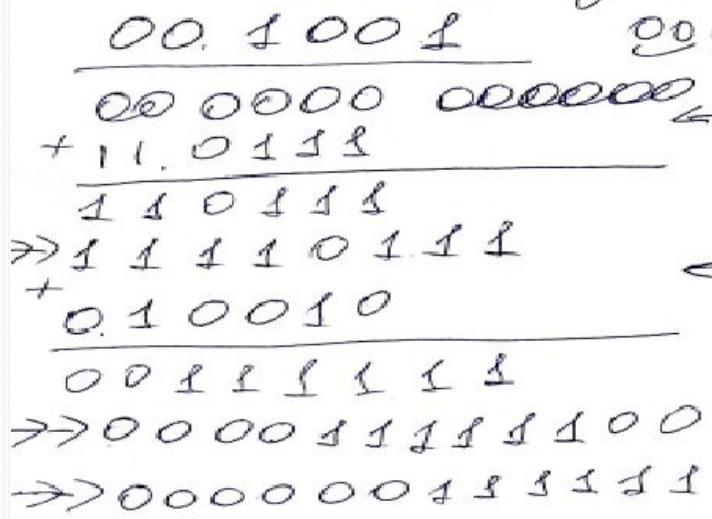 00.1001 00
00 0000 000000
+ 11.0111
110111
>> 11110111
+
0.10010
00111111
>> 000011111100
>> 000000111111